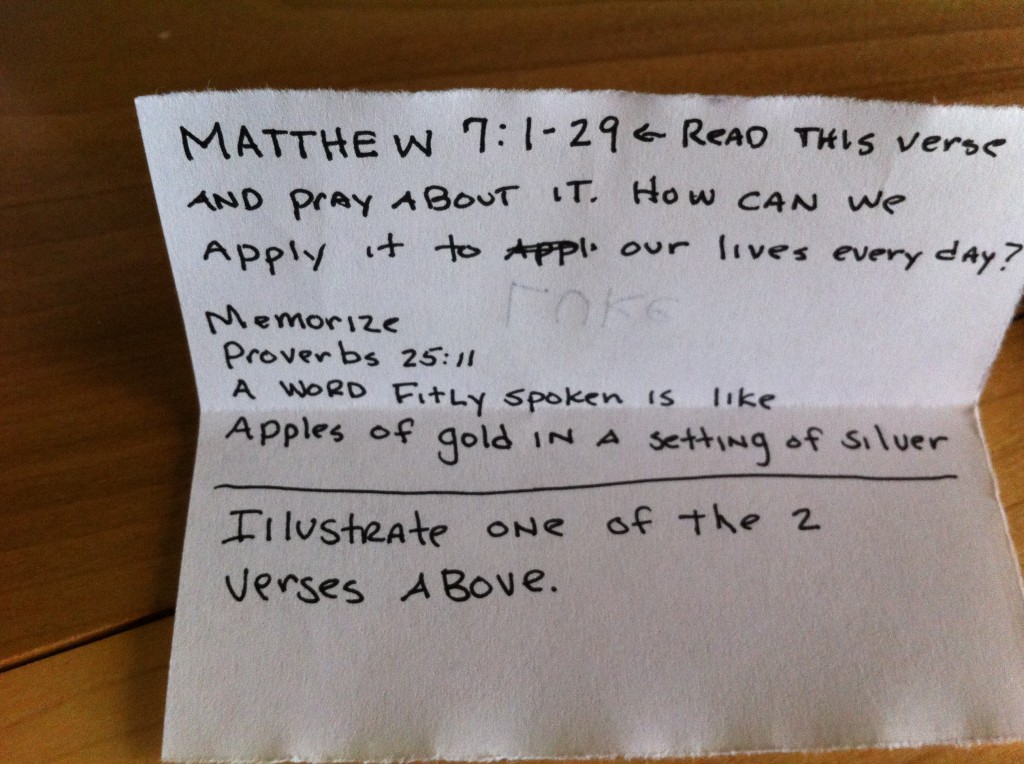 MATTHEW 7:1-29 ← READ THIS verse
AND PrAY ABOUT IT. HOW CAN We
Apply it to our lives every dAy?
Memorize
Proverbs 25:11
A WORD FitLy spoken is like
Apples of gold IN A settINg of silver
Illustrate ONe of the 2
verses ABove.